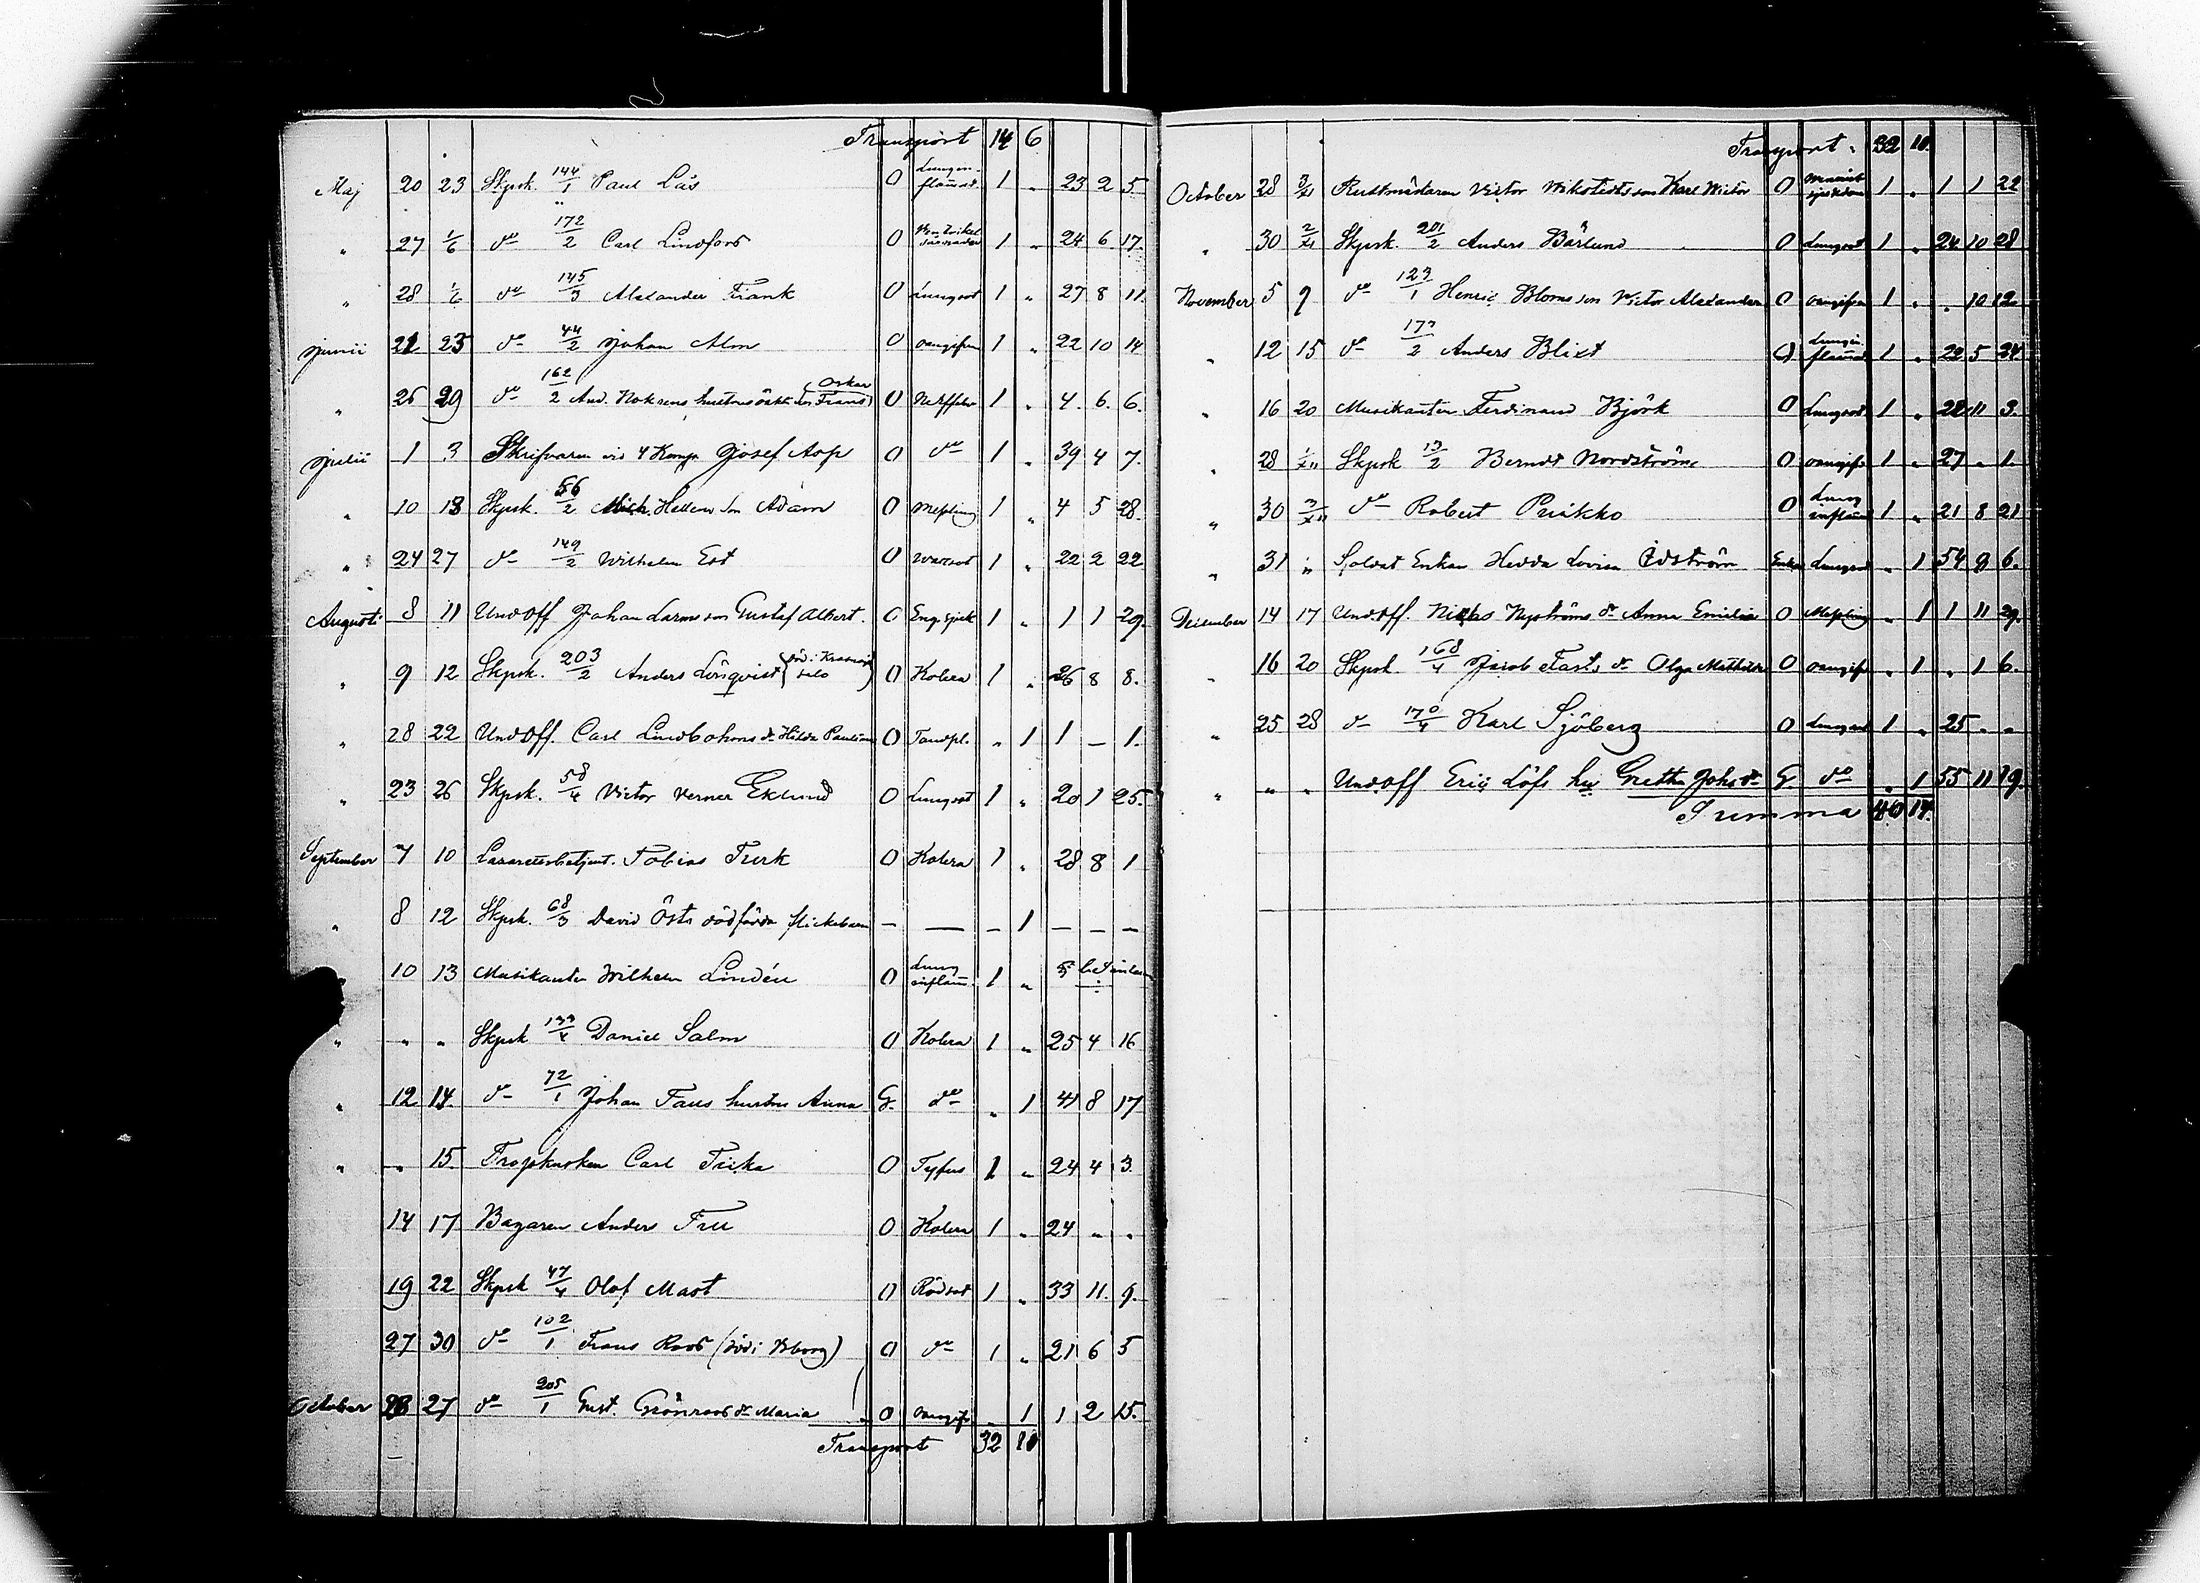 Transport 14 6
Maj 20 23 Skpsk. 144/1 Paul Lås O Lungin- flamat. 1 " 23 2 5.
" 27 1/6 do 172/2 Carl Lindfors O 1 " 24 6 17.
" 28 1/6 do 145/3 Alexander Frank O Lungsot 1 " 27 8 11
Junii 21 23 do 44/2 Johan Alm O oangifven 1 " 22 10 14
" 26 29 do 162/2 And. hustrus oäkta son Frans (Oskar) O Nerffeber 1 " 4. 6. 6.
Julii 1 3 Skrifvaren vid 4 Komp Josef Asp O do 1 " 39 4 7.
" 10 13 Skpsk. 56/2 Mich. Hellens son Adam O Messling 1 " 4 5 28.
" 24 27 do 149/2 Wilhelm Est O 1 " 22 2 22
August 8 11 Und.Off Johan Larms son Gustaf Albert. O Eng. sjuk 1 " 1 1 29.
" 9 12 Skpsk. 203/2 Anders Lönqvist (död i Krasnoje Selo) O Kolera 1 " 26 8 8.
" 28 22 Und.Off. Carl Lindbohms dr Hilda Paulina O Tandspr. " 1 1 – 1.
" 23 26 Skpsk. 58/4 Victor Verner Eklund O Lungsot 1 " 20 1 25.
September 7 10 Lazarettsbetjent. Tobias Turk O Kolera 1 " 28 8 1
" 8 12 Skpsk. 68/3 David Östs dödfödda flickebarn – — – 1 – – –
" 10 13 Musikanten Wilhelm Lindén O Lung inflam. 1 "
" " " Skpsk 133/4 Daniel Salm O Kolera 1 " 25 4 16
" 12 14. do 72/1 Johan Falls hustru Anna G. do " 1 41 8 17
" " 15. Trosskusken Carl O Tyfus 1 " 24 4 3.
14 17 Bagaren Anders O Kolera 1 " 24 " "
19 22 Skpsk 47/4 Olof Mast O Rödsot 1 " 33 11. 9.
27 30 do 102/1 Frans Roos (död i Wborg) O do 1 " 21 6 5
October 23 27 do 205/1 Gust. Grönroos dr Maria O oangifv " 1 1 2 15.
Transport 32 10
Transport " 32 10.
October 28 3/XI Rustmästaren Victor Wikstedts son Karl Victor O 1 " 1 1 22
" 30 2/XI Skpsk. 201/2 Anders Bärlund O Lungsot 1 " 24 10 28
November 5 9 do 123/1 Henric Bloms son Victor Alexander O oangifven 1 " " 10 12.
" 12 15 do 173/2 Anders Blixt O Lungin- flamat 1 " 22 5 24
" 16 20 Musikanten Ferdinand Björk O Lungsot 1 " 22 11 3.
" 28 1/XII Skpsk 13/2 Berndt Nordström O oangifv 1 " 27 " 1.
" 30 3/XII do Robert Puikko O Lung inflam 1 " 21 8 21
" 31 " Soldat Enkan Hedda Lovisa Edström Enka Lungsot " 1 54 9 6.
December 14 17 Und.Off. Niklas Nyströms dr Anna Emilia O Messling " 1 1 11 29.
" 16 20 Skpsk. 168/4 Jacob Fasts dr Olga Mathilda O oangifv " 1 " 1 6.
" 25 28 do 170/4 Karl Sjöberg O Lungsot 1 " 25 " "
" " " Und.Off Eric Löfs hu Gretha Johsdr G. do " 1 55 11 19.
Summa 40 14.